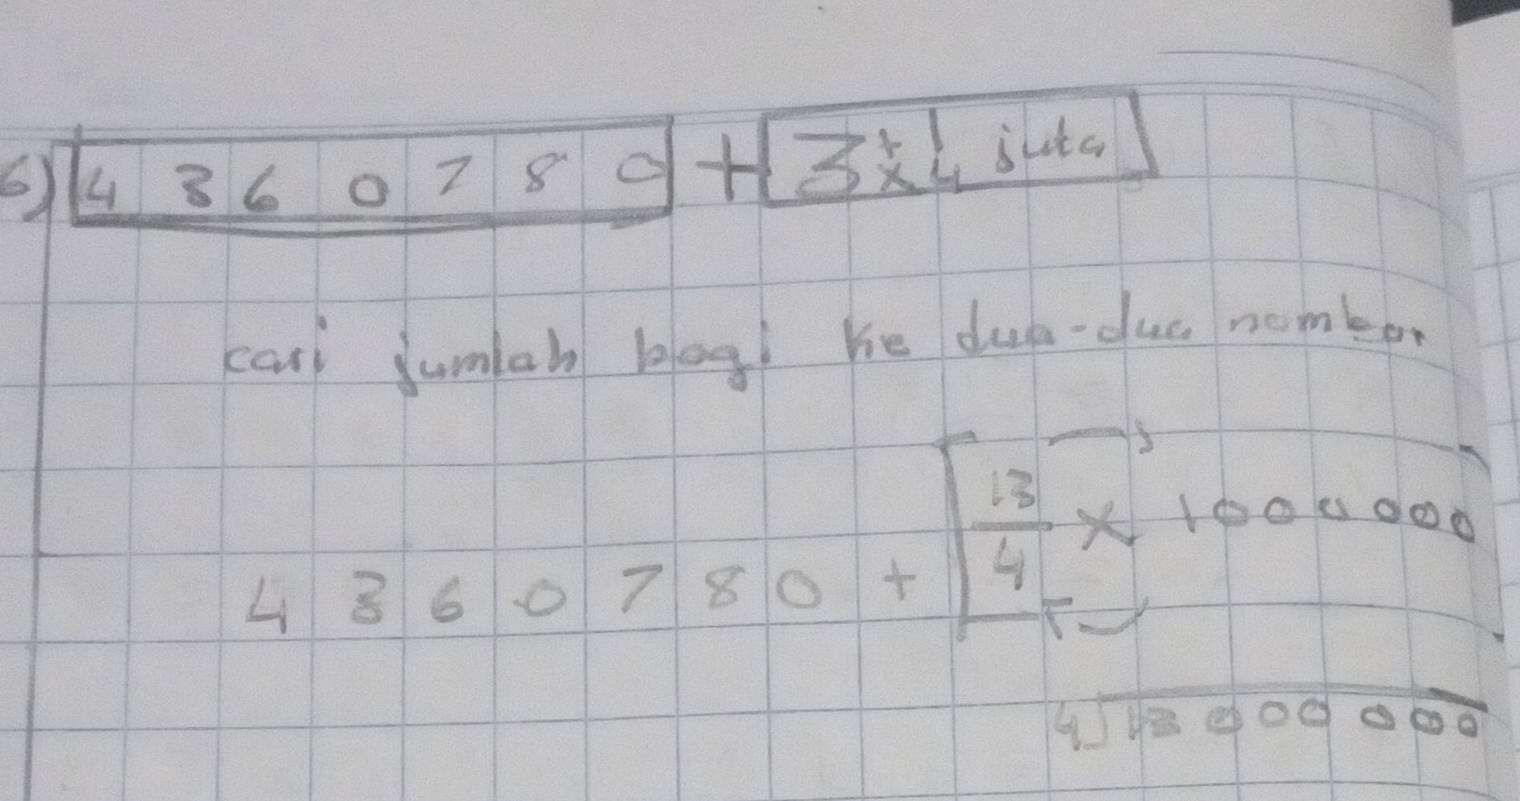 6) 4 3 6 0 7 8 0 + 3 1/4 juta
cari jumlah bagi ke dua-dua nombor
4 3 6 0 7 8 0 + [13/4 × 1000 000]
4)13 000 000